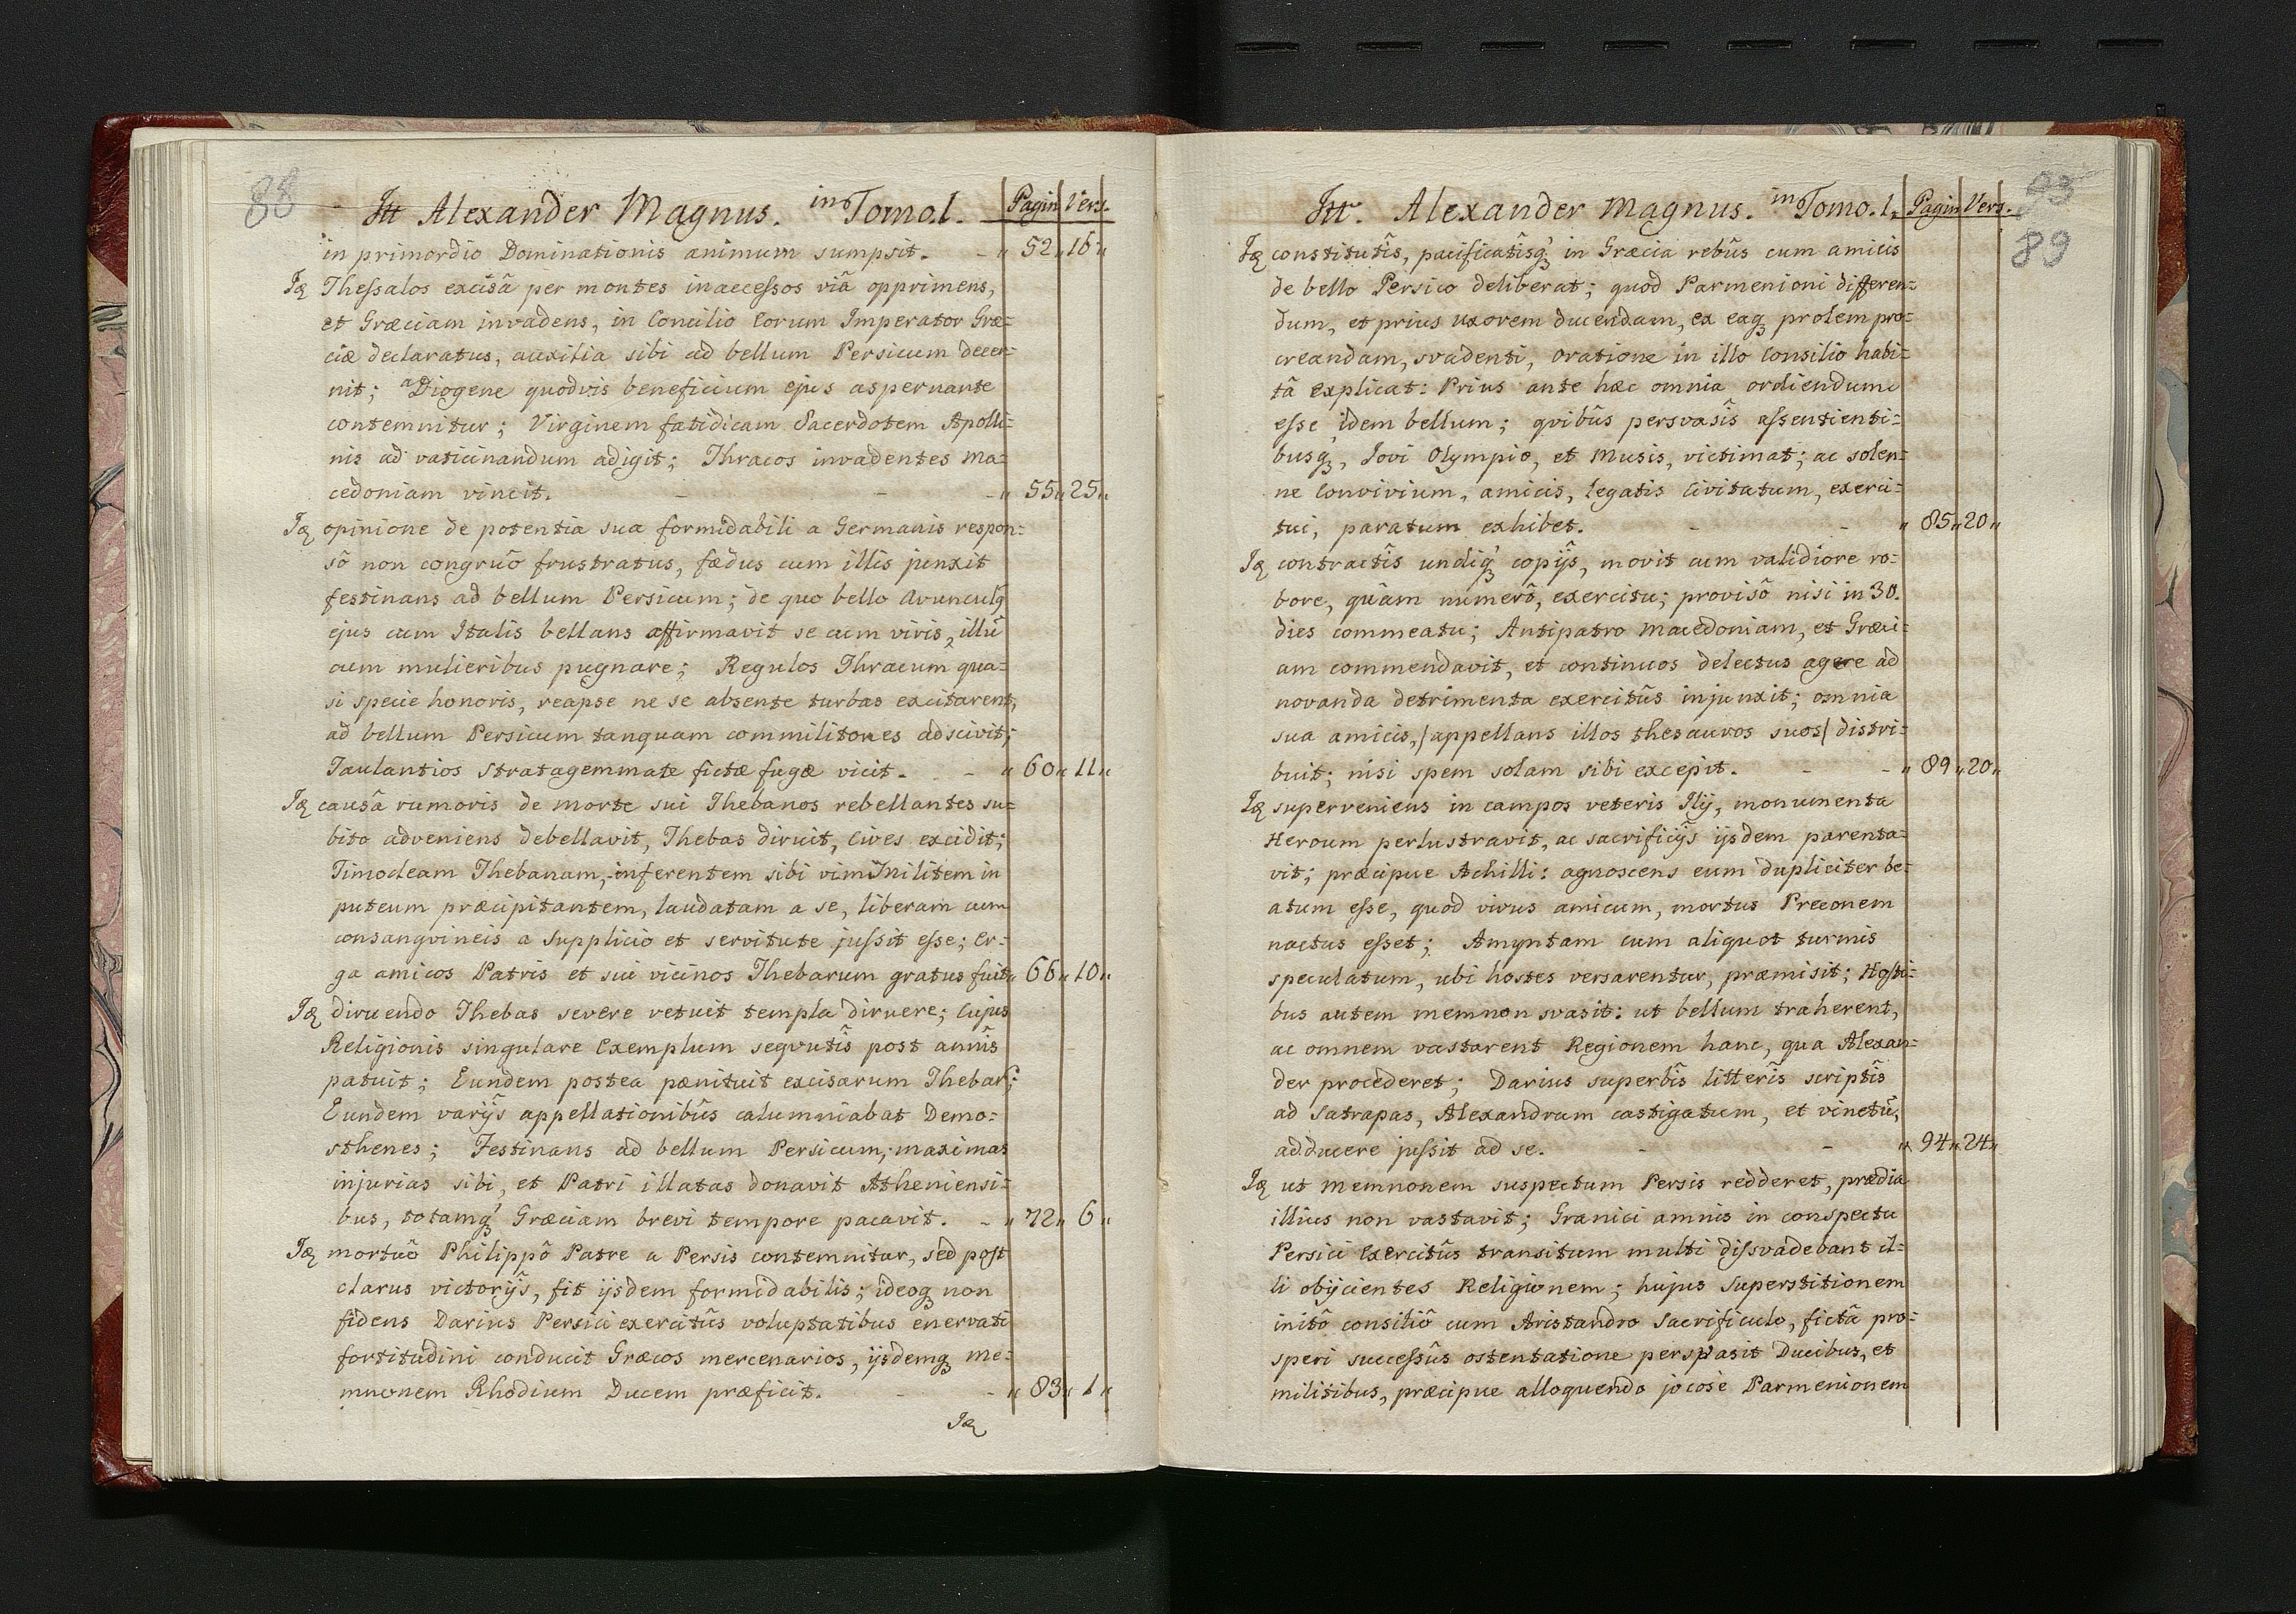 88
Itt Alexander Magnus. in Tomo.1. Pagin Vers.
in primordio Dominationis animum sumpsit. - " 52 " 16 "
Iq Thessalos excisâ per montes inaccessos viâ opprimens,
et Græciam invadens, in Concilio Eorum Imperator Græ=
ciæ declaratus, auxilia sibi ad bellum Persicum decer=
nit; a Diogene quodvis beneficium ejus aspernante
contemnitur; Virginem fatidicam Sacerdotem Apolli=
nis ad vaticinandum adigit; Thracos invadentes Ma=
cedoniam vincit. - - - " 55 " 25 "
Iq opinione de potentia sua formidabili a Germanis respon=
sô non congruô frustratus, fædus cum illis junxit
festinans ad bellum Persicum; de quo bello Avunculq
ejus cum Italis bellans affirmavit se cum viris, illũ
cum mulieribus pugnare; Regulos Thracum qua=
si specie honoris, reapse ne se absente turbas excitarent,
ad bellum Persicum tanquam commilitones adscivit;
Taulantios stratagemmate fictæ fugæ vicit. - " 60 " 11 "
Iq causâ rumoris de morte sui Thebanos rebellantes su=
bito adveniens debellavit, Thebas diruit, Cives excidit;
Timocleam Thebanam, inferentem sibi vim Militem in
puteum præcipitantem, laudatam a se, liberam cum
consangvineis a supplicio et servitute jussit esse; Er=
ga amicos Patris et sui vicinos Thebarum gratus fuit " 66 " 10 "
Iq diruendo Thebas severe vetuit templa diruere; Cujus
Religionis singulare Exemplum seqvutîs post annîs
patuit; Eundem postea pænituit excisarum Thebar;
Eundem varijs appellationibûs calumniabat Demo=
sthenes; Festinans ad bellum Persicum, maximas
injurias sibi, et Patri illatas donavit Atheniensi=
bus, totamq Græciam brevi tempore pacavit. - " 72 " 6 "
Iq mortuô Philippô Patre a Persis contemnitur, sed post
clarus victorijs, fit ijsdem formidabilis; ideoq non
fidens Darius Persici exercitûs voluptatibus enervati
fortitudini conducit Græcos mercenarios, ijsdemq Me=
mnonem Rhodium Ducem præficit. - - " 83 " 1 "
Iq
Itt. Alexander Magnus. in Tomo. 1. Pagin Vers.
89
Iq constitutîs, pacificatîsq in Græcia rebûs cum amicis
de bello Persico deliberat; quod Parmenioni differen=
dum, et prius uxorem ducendam, ex eaq prolem pro=
creandam, svadenti, oratione in illo Consilio habi=
tâ explicat: Prius ante hæc omnia ordiendum
esse idem bellum; qvibûs persvasîs assentienti=
busq, Jovi Olympio, et Musis, victimat; ac solen=
ne Convivium, amicis, legatis Civitatum, exerci=
tui, paratum exhibet. - - " 85 " 20 "
Iq contractîs undiq copijs, movit cum validiore ro=
bore, quàm numerô, exercitu; provisô nisi in 30.
dies commeatu; Antipatro Macedoniam, et Græci=
am commendavit, et continuos delectus agere ad
novanda detrimenta exercitûs injunxit; omnia
sua amicis, /appellans illos thesauros suos/ distri=
buit; nisi spem solam sibi excepit. - - " 89 " 20 "
Iq superveniens in campos veteris Ilij, monumenta
Heroum perlustravit, ac sacrificijs ijsdem parenta=
vit; præcipue Achilli: agnoscens eum dupliciter be=
atum esse, quod vivus amicum, mortus Preconem
nactus esset; Amyntam cum aliquot turmis
speculatum, ubi hostes versarentur, præmisit; Hosti=
bus autem Memnon svasit: ut bellum traherent,
ac omnem vastarent Regionem hanc, qua Alexan=
der procederet; Darius superbîs litterîs scriptîs
ad Satrapas, Alexandrum castigatum, et vinctũ,
adducere jussit ad se. - - " 94 " 24 "
Iq ut Memnonem suspectum Persis redderet, prædia
illius non vastavit; Granici amnis in conspectu
Persici Exercitûs transitum multi dissvadebant il=
li objicientes Religionem; hujus Superstitionem
initô consiliô cum Aristandro Sacrificulo, fictâ pro=
speri successûs ostentatione persvasit Ducibus, et
militibus, præcipue alloquendo jocosè Parmenionem